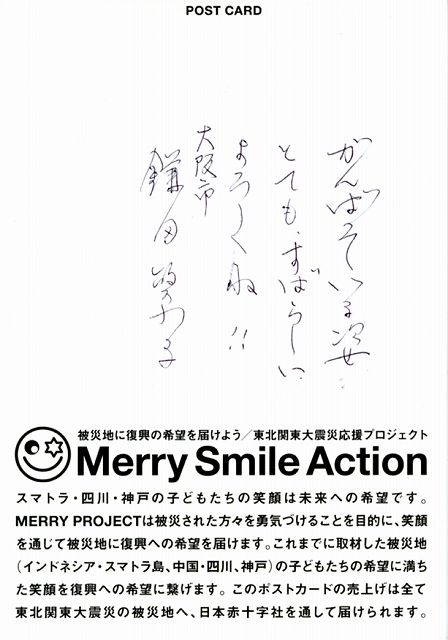 POST CARD
がんばっている姿
とても、すばらしい
よろしくね!!
大阪市
鎌田
被災地に復興の希望を届けよう／東北関東大震災応援プロジェクト
Merry Smile Action
スマトラ・四川・神戸の子どもたちの笑顔は未来への希望です。
MERRY PROJECTは被災された方々を勇気づけることを目的に、笑顔
を通じて被災地に復興への希望を届けます。これまでに取材した被災地
(インドネシア・スマトラ島、中国・四川、神戸)の子どもたちの希望に満ち
た笑顔を復興への希望に繋げます。このポストカードの売上げは全て
東北関東大震災の被災地へ、日本赤十字社を通して届けられます。